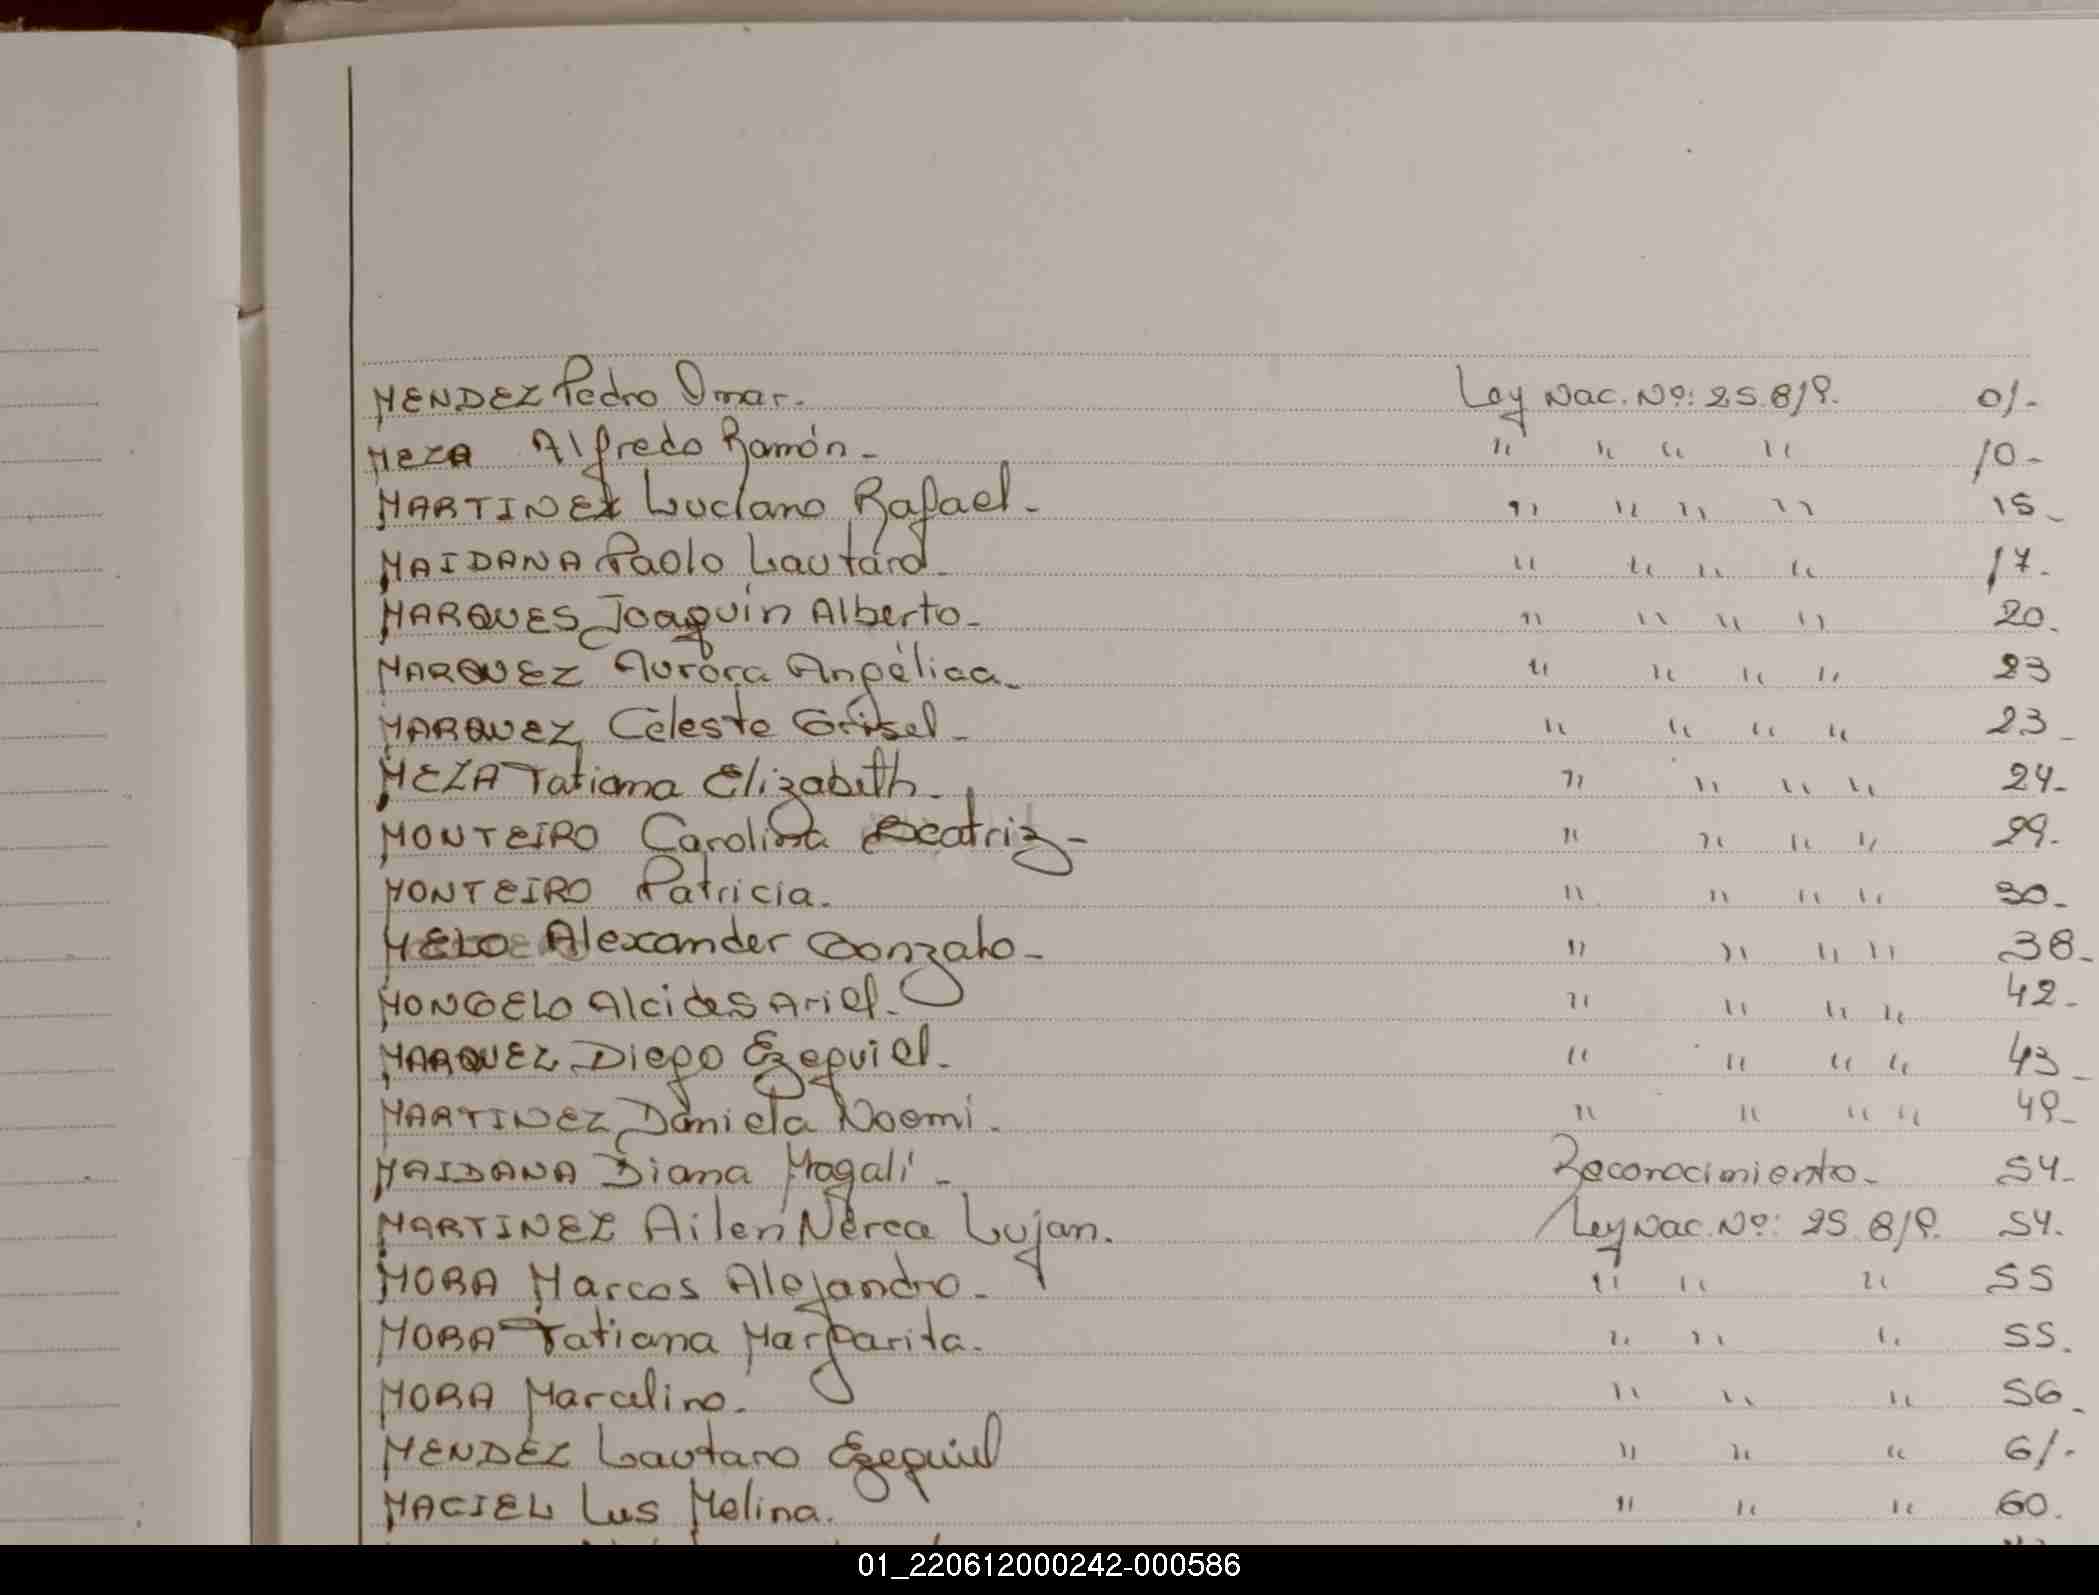 MENDEZ Pedro Omar. Ley Nac. Nº: 25.819. 01.-
MEZA Alfredo Ramón - " " " " 10-
MARTINEZ Luciano Rafael - " " " " 15-
MAIDANA Paolo Lautaro. " " " " 17.
MARQUES Joaquín Alberto- " " " " 20.
MARQUEZ Aurora Angélica- " " " " 23
MARQUEZ Celeste Grisel - " " " " 23-
MEZA Tatiana Elizabeth - " " " " 24-
MONTEIRO Carolina Beatriz- " " " " 29.
MONTEIRO Patricia. " " " " 30-
MELO Alexander Gonzalo- " " " " 38-
MONGELO Alcides Ariel- " " " " 42-
MARQUEZ Diego Ezequiel- " " " " 43-
MARTINEZ Daniela Noemí. " " " " 49-
MAIDANA Diana Magalí - Reconocimiento- 54-
MARTINEZ Ailen Nerea Lujan. Ley Nac. Nº: 25.819. 54.
MORA Marcos Alejandro- " " " 55
MORA Tatiana Margarita. " " " 55.
MORA Marcelino. " " " 56-
MENDEZ Lautaro Ezequiel " " " 61-
MACIEL Lus Melina. " " " 60.
01_220612000242-000586